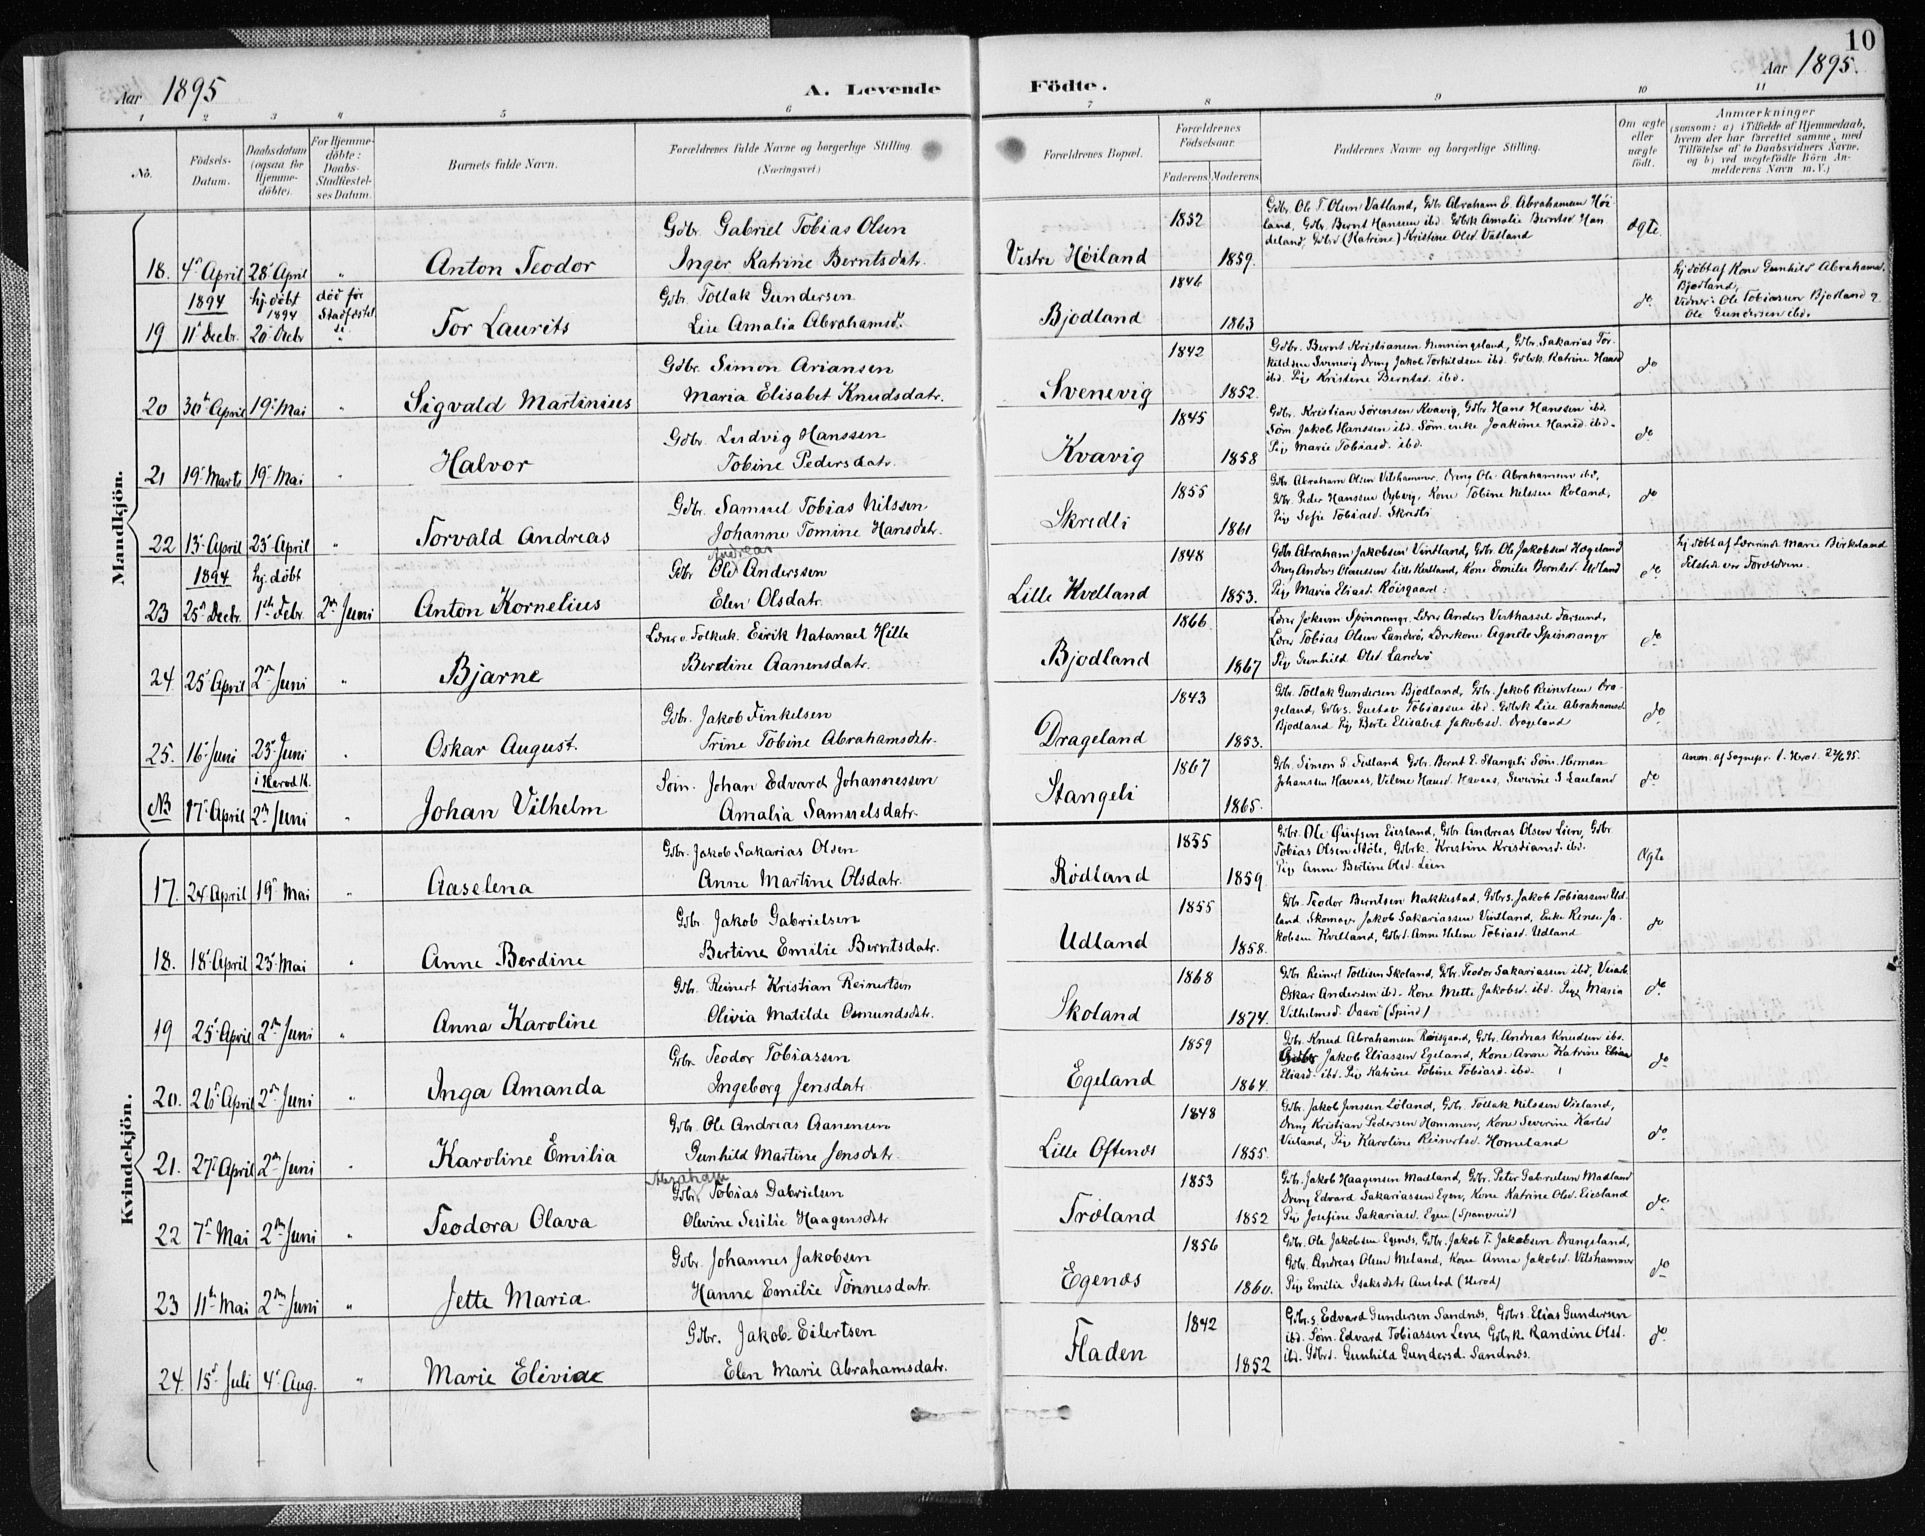 10
Aar 1895
A. Levende Födte.
Aar 1895.
1 2 3 4 5 6 7 8 9 10 11
No.
Födsels-Datum.
Daabsdatum (ogsaa for Hjemme-döbte).
For Hjemme-döbte: Daabs-Stadfestel-ses Datum.
Barnets fulde Navn.
Forældrenes fulde Navne og borgerlige Stilling. (Næringsvei)
Forældrenes Bopæl.
Forældrenes Födselsaar.
Faderens Moderens
Faddernes Navne og borgerlige Stilling.
Om ægte eller uægte født.
Anmærkninger (saasom: a) i Tilfælde af Hjemmedaab, hvem der har forrettet samme, med Tilföielse af to Daabsvidners Navne, og b) ved uægtefödte Börn An-melderens Navn m. V.)
Mandkjön.
18. 4de April 28de April " Anton Teodor
Gdbr. Gabriel Tobias Olsen
Inger Katrine Berntsdatr.
Vestre Høiland 1852 1859.
Gdbr. Ole T. Olsen Vatland, Gdbr Abraham E. Abrahamsen Høi-
land, Gdbr. Bernt Hansen ibd. Gdbrk Amalie Berntsd Han
deland, Gdbrd (Katrine) Kristine Olsd. Vatland
ægte.
1894 hj. døbt 1894 død før Stadfæstel se.
19 11te Decbr. 20de Decbr " Tor Laurits
Gdbr. Tollak Gundersen
Lise Amalia Abrahamsd.
Bjodland 1846 1863
do.
hj. døbt af Kone Gunhild Abrahamsd.
Bjodland,
Vidner: Ole Tobiassen Bjodland og
Ole Gundersen ibd.
20 30te April 19de Mai " Sigvald Martinius
Gdbr. Simon Ariansen
Maria Elisabet Knudsdatr.
Svenevig 1842 1852.
Gdbr. Bernt Kristiansen Henningsland, Gdbr. Sakarias Tor-
kildsen Svenevig Dreng Jakob Torkildsen ibd. Gdbrk. Katrine Hansd
ibd. Pige Kristine Berntsd. ibd.
do
21 19de Marts 19de Mai " Halvor
Gdbr. Ludvig Hanssen
Tobine Pedersdatr.
Kvavig 1845 1858
Gdbr. Kristian Sørensen Kvavig, Gdbr Hans Hanssen ibd.
Søm. Jakob Hanssen ibd. Søm. enke Joakime Hansd. ibd.
Pige Marie Tobiasd. ibd.
do
22 13de April 23de April " Torvald Andreas
Gdbr. Samuel Tobias Nilssen
Johanne Tomine Hansdatr.
Skredli 1855 1861
Gdbr. Abraham Olsen Vilshammer, Dreng Ole Abrahamsen ibd,
Gdbr. Peder Hanssen Dybvig, Kone Tobine Nelssen Roland,
Pige Sofie Tobiasd. Skredli
do
1894 hj. døbt
23 25de Decbr. 1ste Febr. 2den Juni Anton Kornelius
Andreas
Gdbr Ole Anderssen
Elen Olsdatr.
Lille Kvelland 1848 1853.
Gdbr. Abraham Jakobsen Vintland, Gdbr. Ole Jakobsen Hægeland
Dreng Anders Olaussen Lille Kvelland, Kone Emilie Berntsd. Udland
Pige Maria Eliasd. Røisgaard.
do.
hj. døbt af Lærerinde Marie Birkeland
Tilstede var Forældrene.
24. 25de April 2den Juni " Bjarne
Lærer v. Folkesk. Eirik Natanael Hille
Berdine Aanensdatr.
Bjodland 1866. 1867
Lærer Jokum Spinnangr. Lærer Anders Vesthassel Farsund,
Lærer Tobias Olsen Landerø, Lærerkone Agnete Spinnangr
Pige Gunhild Olsd Landerø
do.
25. 16de Juni 23de Juni " Oskar August.
Gdbr. Jakob Finkelsen
Trine Tobine Abrahamsdatr.
Drageland 1843 1853.
Gdbr. Tollak Gundersen Bjodland, Gdbr. Jakob Reinertsen Dra-
geland, Gdbrs. Gustav Tobiassen ibd. Gdbrk Lise Abrahamsd
Bjodland Pige Berte Elisabet Jakobsd. Drageland
do
i Herod K.
NB 17de April 2den Juni " Johan Vilhelm
Søm. Johan Edvard Johannessen
Amalia Samuelsdatr.
Stangeli 1867 1865.
Gdbr. Simon S. Fidland Gdbr. Bernt E. Stangeli Søm. Herman
Johansen Havaas, Velene Hansd. Havaas, Severine S. Laueland
do.
anm. af Sognepr. t. Herod 22/6 95.
Kvindekjön.
17. 24de April 19de Mai " Aaselena
Gdbr. Jakob Sakarias Olsen
Anne Martine Olsdatr.
Rødland 1855 1859
Gdbr. Ole Guttsen Eiesland, Gdbr Andreas Olsen Lien, Gdbr
Tobias Olsen Støle, Gdbrk. Kristine Kristiansd. ibd.
Pige Anne Bertine Olsd. Lien
Ægte
18. 18de April 23de Mai " Anne Berdine
Gdbr. Jakob Gabrielsen
Bertine Emilie Berntsdatr.
Udland 1855 1858.
Gdbr. Teodor Berntsen Nakkestad, Gdbrs. Jakob Tobiassen Ud-
land Skomager Jakob Sakariassen Vintland, Enke Rense Ja-
kobsen Kvelland, Gdbrd. Anne Helene Tobiasd. Udland
do
19 25de April 2den Juni " Anna Karoline
Gdbr. Reinert Kristian Reinertsen
Olivia Matilde Osmundsdatr.
Skoland 1868 1874.
Gdbr. Reinert Tollisen Skoland, Gdbr. Teodor Sakariassen ibd,
Oskar Anderssen ibd. Kone Mette Jakobsd. ibd. Pige Maria
Vilhelmsd. Daarø (Spind)
do.
20. 26de April 2den Juni " Inga Amanda
Gdbr. Teodor Tobiassen
Ingeborg Jensdatr.
Egeland 1859 1864.
Gdbr. Knud Abrahamsen Røisgaard, Gdbr. Andreas Knudsen ibd.
Gdbr Jakob Eliassen Egeland, Kone Anne Katrine
Eliasd. ibd. Pige Katrine Tobine Tobiasd. ibd.
do.
21. 27de April 2den Juni " Karoline Emilia
Gdbr. Ole Andreas Aanensen
Gunhild Martine Jensdatr.
Lille Oftenæs 1848 1855.
Gdbr. Jakob Jenssen Løland, Gdbr. Tollak Nilssen Vieland,
Dreng Kristian Pedersen Hommen, Kone Severine Karlsd
Vieland, Pige Karoline Reinertsd. Homeland
do.
22 7de Mai 2den Juni " Teodora Olava
Abraham
Gdbr. Tobias Gabrielsen
Olevine Sesilie Haagensdatr
Trøland 1853 1852
Gdbr. Jakob Haagensen Madland, Gdbr. Peter Gabrielsen Madland
Dreng Edvard Sakariassen Egen, Kone Katrine Olsd. Eiesland
Pige Josefine Sakariasd. Egen (Spangreid)
do.
23 11te Mai 2den Juni " Jette Maria
Gdbr. Johannes Jakobsen
Hanne Emilie Tønnesdatr.
Egenæs 1856 1860.
Gdbr. Ole Jakobsen Egenæs, Gdbr. Jakob T. Jakobsen Drangeland,
Gdbr. Andreas Olsen Meland, Kone Anna Jakobsd. Vilshammer
Pige Emilie Isaksdatr Austad (Herod)
do
24. 15de Juli 4de Aug. " Marie Eliviæ
Gdbr. Jakob Eilertsen
Elen Marie Abrahamsdatr.
Fladen 1842 1852
Gdbr.s. Edvard Gundersen Sandnæs, Gdbrs. Elias Gundersen
ibd. Søm. Edvard Tobiassen Lene, Gdbrk. Randine Olsd.
ibd. Gdbrd. Gunhild Gundersd. Sandnæs.
do.